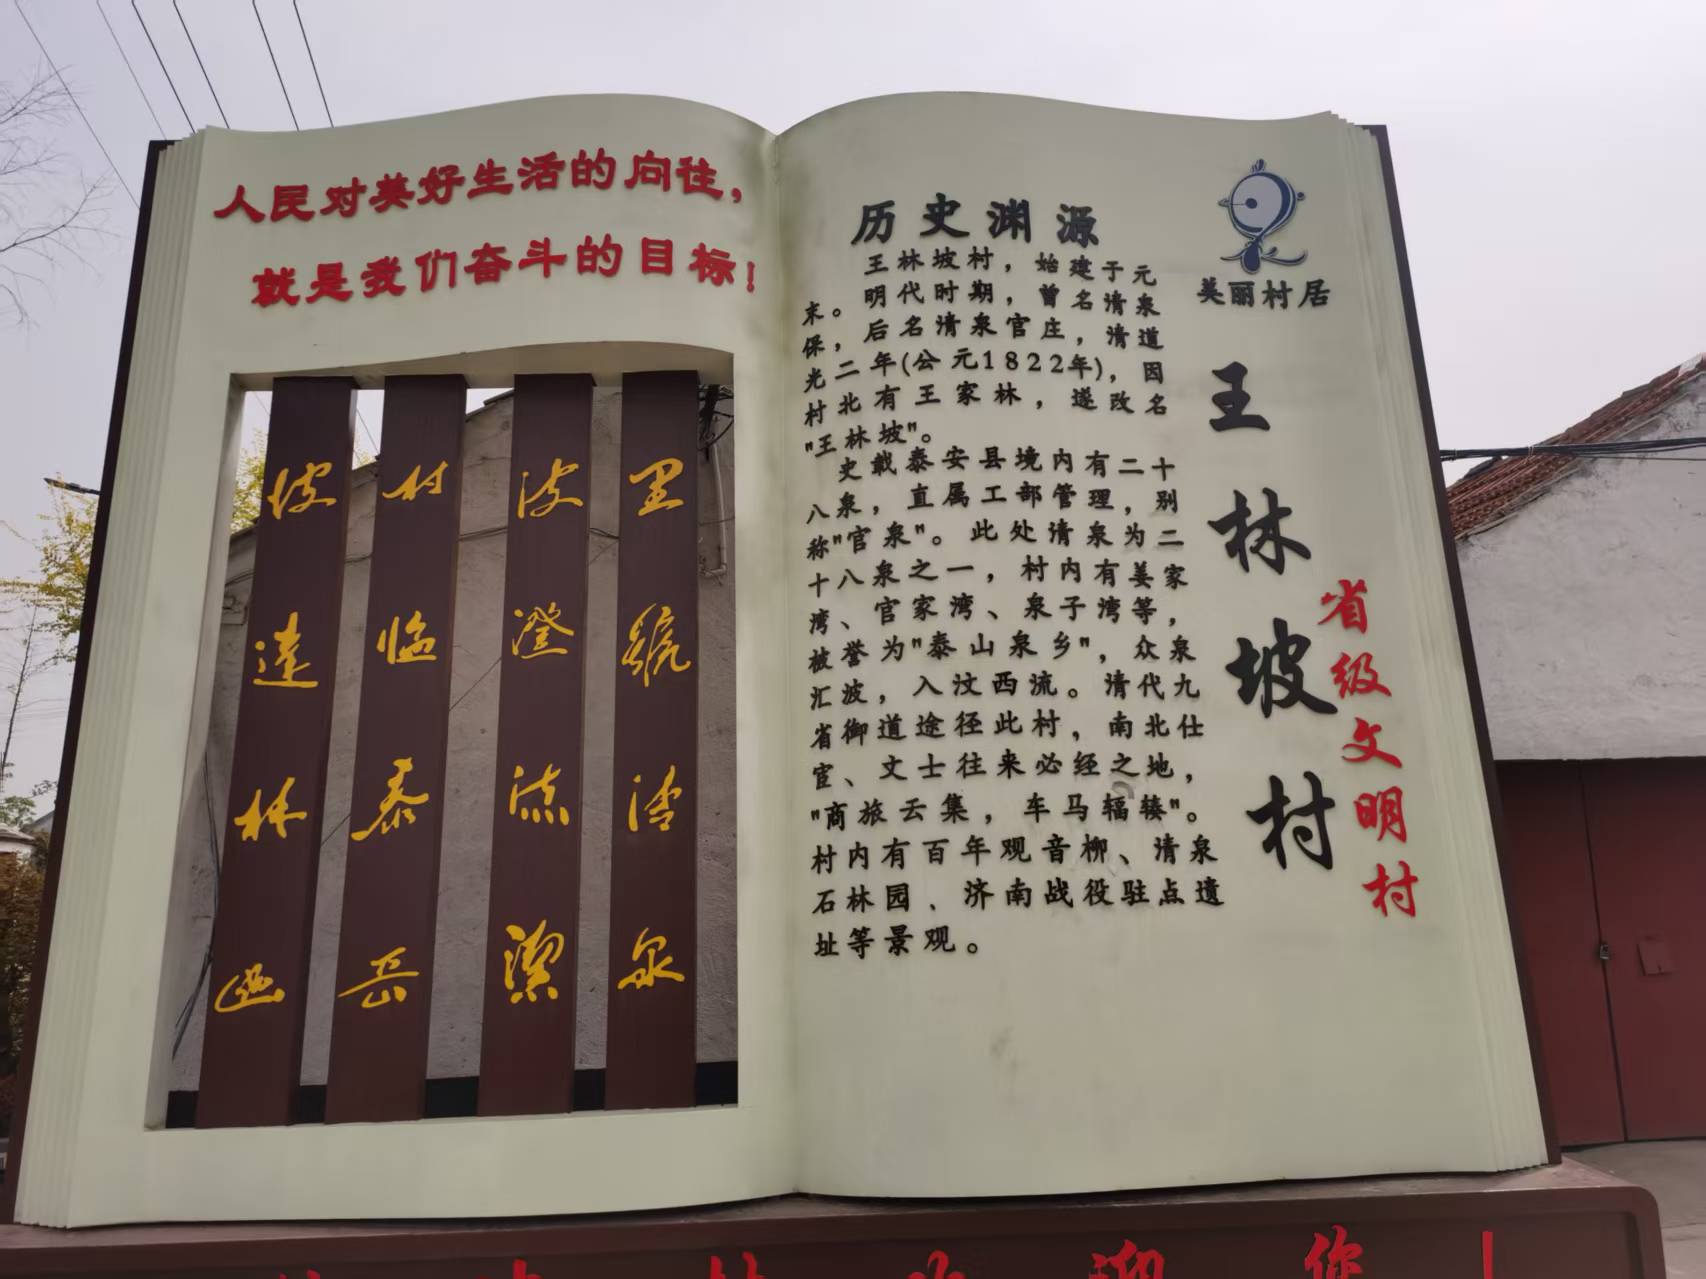 人民对美好生活的向往，
就是我们奋斗的目标！
里號清泉
波澄流潔
村临泰岳
坡遠林幽
历史渊源
王林坡村，始建于元
末。明代时期，曾名清泉
保，后名清泉官庄，清道
光二年(公元1822年)，因
村北有王家林，遂改名
"王林坡"。
史载泰安县境内有二十
八泉，直属工部管理，别
称"官泉"。此处清泉为二
十八泉之一，村内有姜家
湾、官家湾、泉子湾等，
被誉为"泰山泉乡"，众泉
汇波，入汶西流。清代九
省御道途径此村，南北仕
宦、文士往来必经之地，
"商旅云集，车马辐辏"。
村内有百年观音柳、清泉
石林园、济南战役驻点遗
址等景观。
美丽村居
王林坡村
省级文明村
迎您！